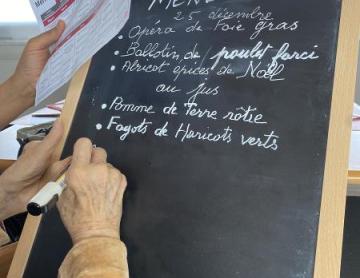 MENU
25 décembre
• Opéra de Foie gras
• Ballotin de poulet farci
• Abricot épices de Noël
au jus
• Pomme de Terre rôtie
• Fagots de Haricots verts